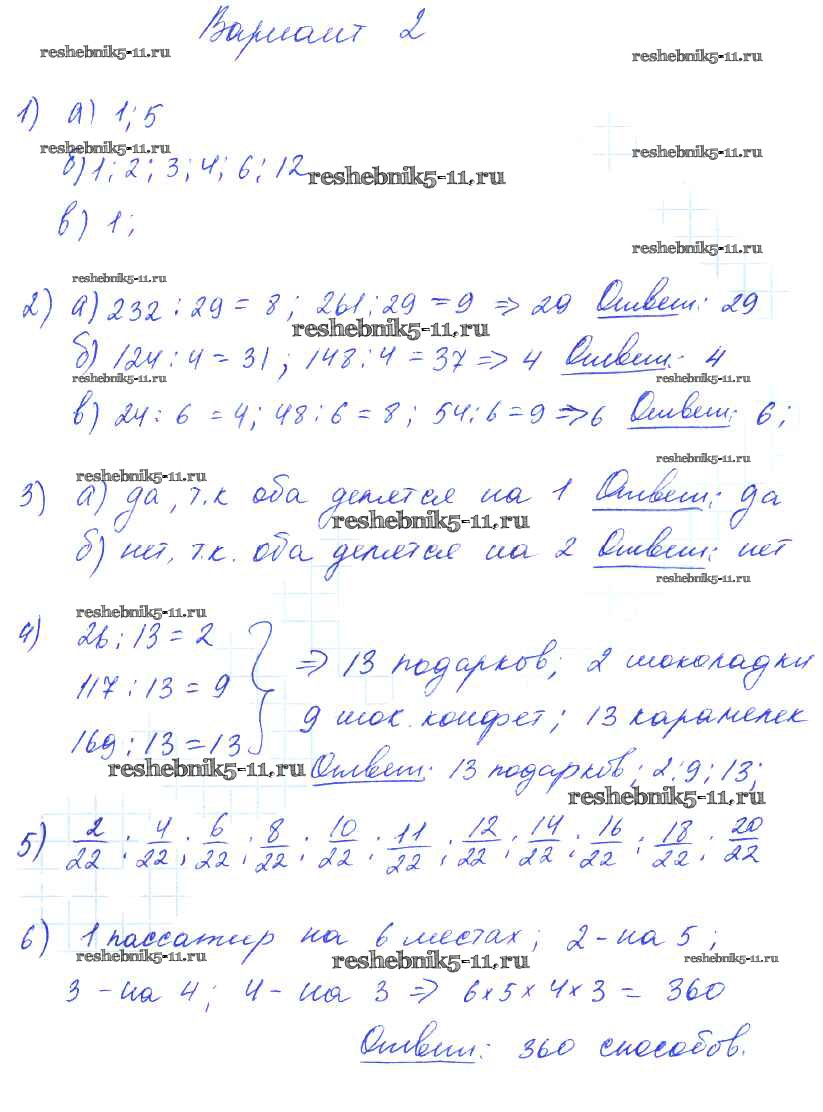 Вариант 2
reshebnik5-11.ru reshebnik5-11.ru
1) а) 1; 5
reshebnik5-11.ru reshebnik5-11.ru
б) 1; 2; 3; 4; 6; 12 reshebnik5-11.ru
в) 1; reshebnik5-11.ru
reshebnik5-11.ru
2) а) 232 : 29 = 8; 261 : 29 = 9 => 29 Ответ: 29
reshebnik5-11.ru
б) 124 : 4 = 31; 148 : 4 = 37 => 4 Ответ: 4
reshebnik5-11.ru reshebnik5-11.ru
в) 24 : 6 = 4; 48 : 6 = 8; 54 : 6 = 9 => 6 Ответ: 6;
reshebnik5-11.ru reshebnik5-11.ru
3) а) да, т.к оба делятся на 1 Ответ: да
reshebnik5-11.ru
б) нет, т.к. оба делятся на 2 Ответ: нет
reshebnik5-11.ru
reshebnik5-11.ru
4) 26 : 13 = 2
117 : 13 = 9 => 13 подарков; 2 шоколадки
169 : 13 = 13 9 шок. конфет; 13 карамелек
reshebnik5-11.ru Ответ: 13 подарков; 2; 9; 13;
reshebnik5-11.ru
5) 2/22; 4/22; 6/22; 8/22; 10/22; 11/22; 12/22; 14/22; 16/22; 18/22; 20/22
6) 1 пассажир на 6 местах; 2 - на 5;
reshebnik5-11.ru reshebnik5-11.ru reshebnik5-11.ru
3 - на 4; 4 - на 3 => 6 x 5 x 4 x 3 = 360
Ответ: 360 способов.